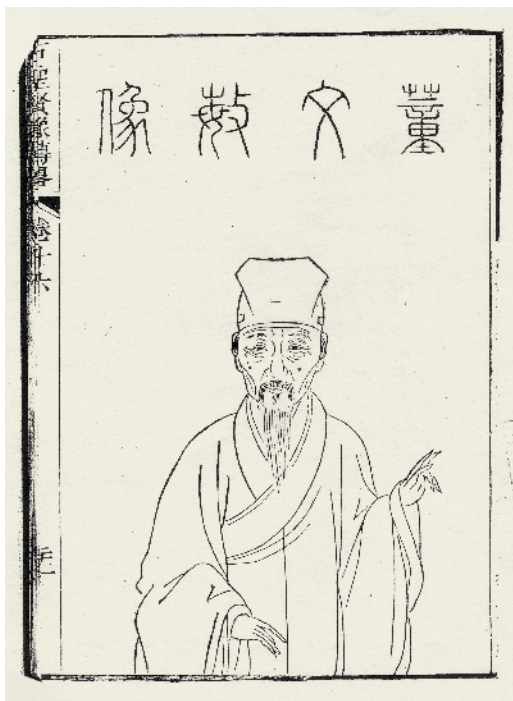 董文敏像
古聖賢像傳畧
卷十六